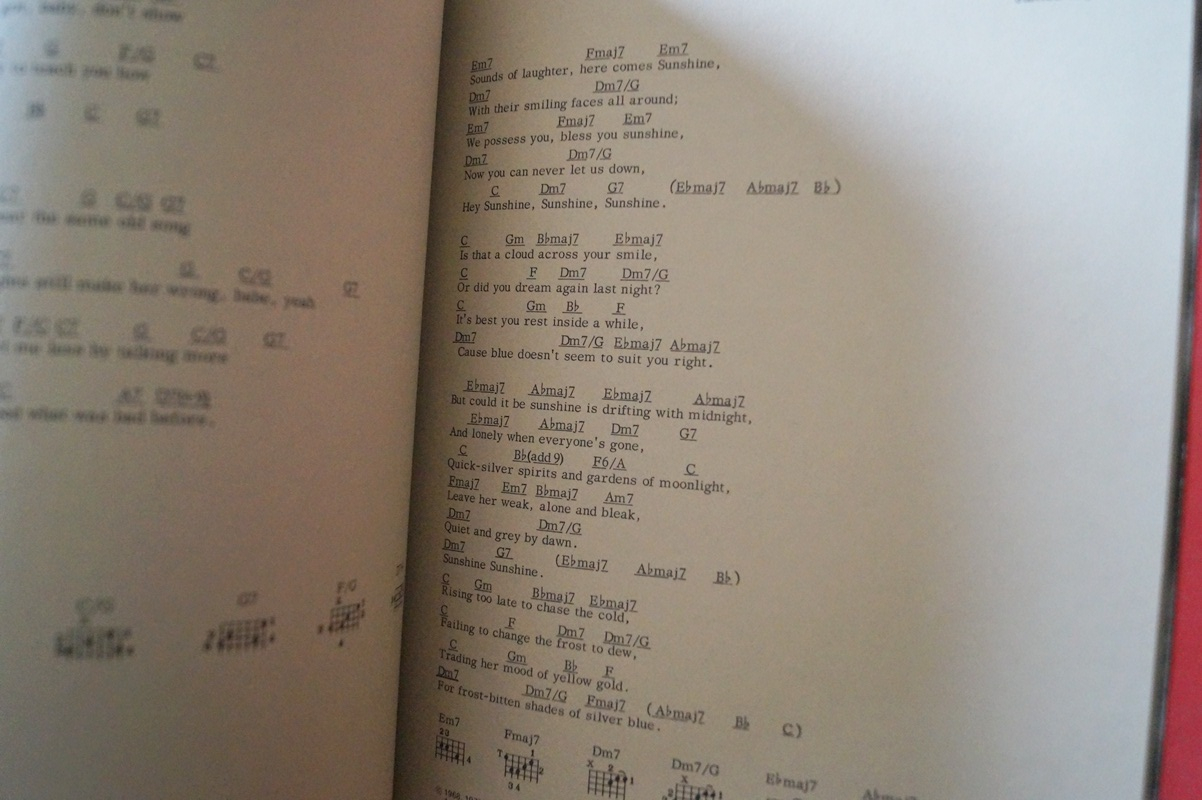 don't show
G F/G C7
to teach you how
B C G7
G C/G G7
the same old song
G C/G G7
will make her wrong, babe, yeah
F/G C7 G C/G G7
my love by talking more
A7
what was bad before.
C/G G7 F/G
Em7 Fmaj7 Em7
Sounds of laughter, here comes Sunshine,
Dm7 Dm7/G
With their smiling faces all around;
Em7 Fmaj7 Em7
We possess you, bless you sunshine,
Dm7 Dm7/G
Now you can never let us down,
C Dm7 G7 (E♭maj7 A♭maj7 B♭)
Hey Sunshine, Sunshine, Sunshine.
C Gm B♭maj7 E♭maj7
Is that a cloud across your smile,
C F Dm7 Dm7/G
Or did you dream again last night?
C Gm B♭ F
It's best you rest inside a while,
Dm7 Dm7/G E♭maj7 A♭maj7
Cause blue doesn't seem to suit you right.
E♭maj7 A♭maj7 E♭maj7 A♭maj7
But could it be sunshine is drifting with midnight,
E♭maj7 A♭maj7 Dm7 G7
And lonely when everyone's gone,
C B♭(add9) F6/A C
Quick-silver spirits and gardens of moonlight,
Fmaj7 Em7 B♭maj7 Am7
Leave her weak, alone and bleak,
Dm7 Dm7/G
Quiet and grey by dawn.
Dm7 G7 (E♭maj7 A♭maj7 B♭)
Sunshine Sunshine.
C Gm B♭maj7 E♭maj7
Rising too late to chase the cold,
C F Dm7 Dm7/G
Failing to change the frost to dew,
C Gm B♭ F
Trading her mood of yellow gold.
Dm7 Dm7/G Fmaj7 (A♭maj7 B♭ C)
For frost-bitten shades of silver blue.
Em7 Fmaj7 Dm7 Dm7/G E♭maj7 A♭maj7
© 1968,